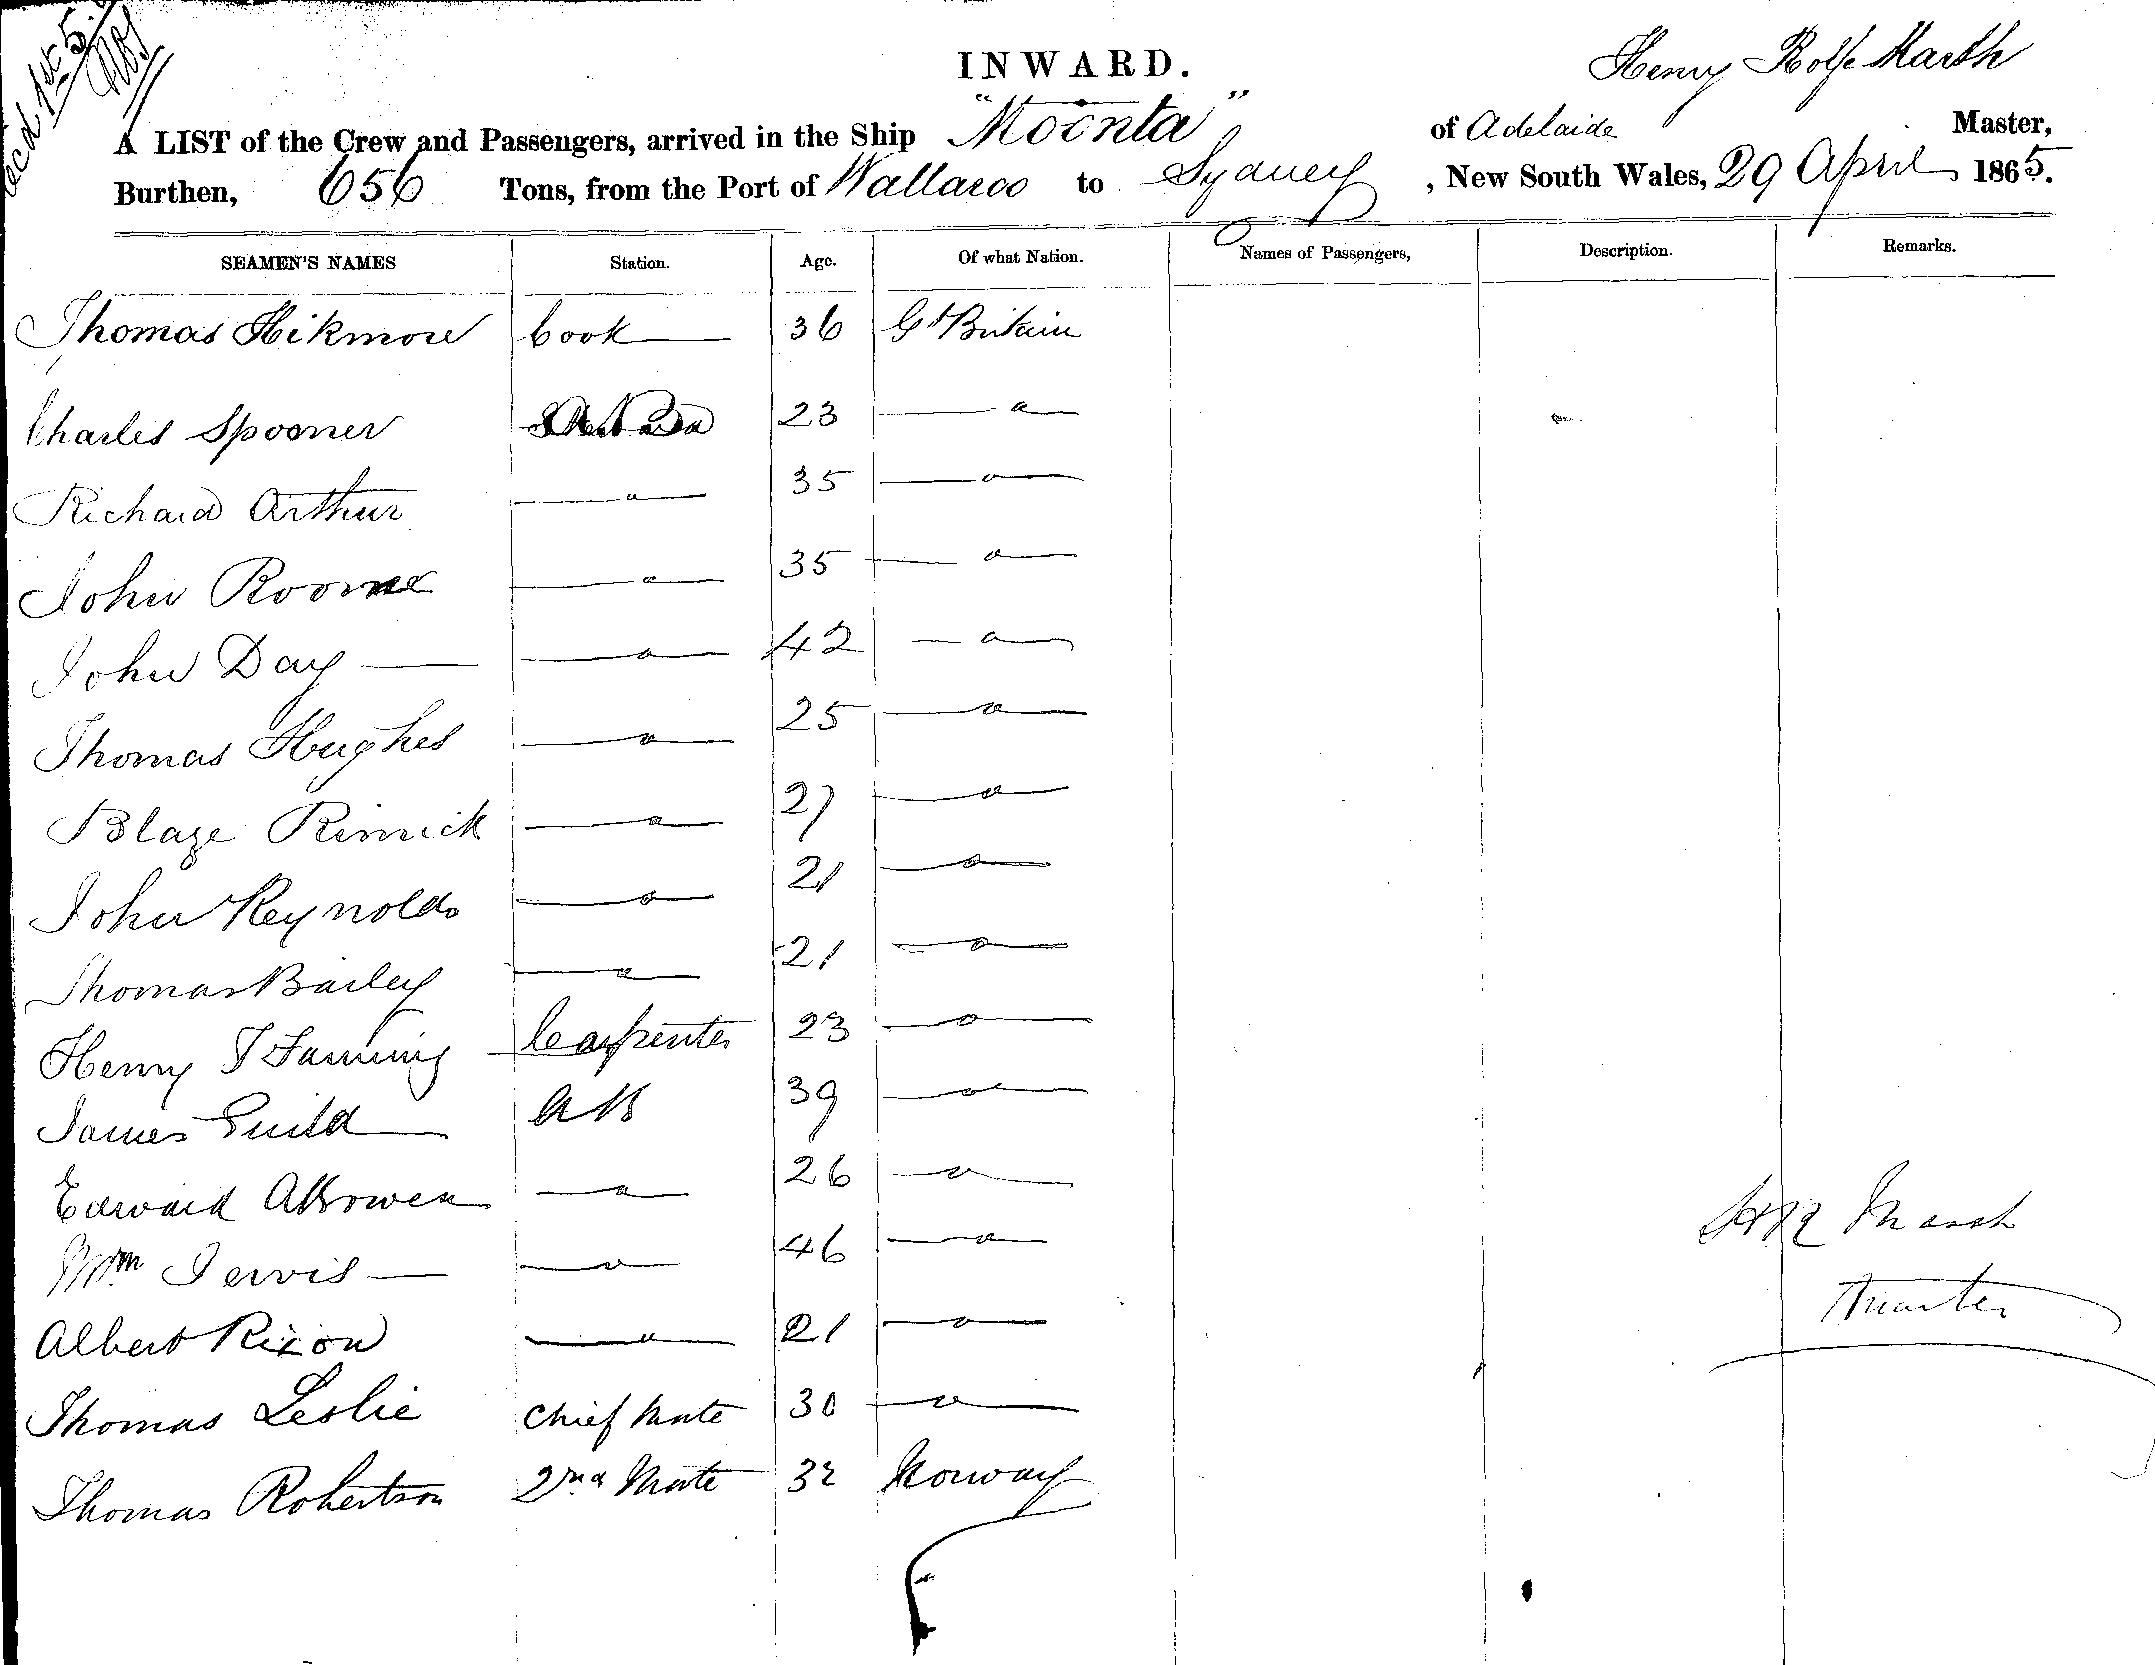 INWARD.
Henry Rolfe Marsh
A LIST of the Crew and Passengers, arrived in the Ship "Moonta" of Adelaide Master,
Burthen, 656 Tons, from the Port of Wallaroo to Sydney, New South Wales, 29 April 1865.
SEAMEN'S NAMES Station. Age. Of what Nation. Names of Passengers, Description. Remarks.
Thomas Hikmore Cook 36 Gt Britain
Charles Spooner 23 — " —
Richard Arthur — " — 35 — " —
John — " — 35 — " —
John Day — " — 42 — " —
Thomas Hughes — " — 25 — " —
Blaze — " — 27 — " —
John Reynolds — " — 21 — " —
Thomas Bailey — " — 21 — " —
Henry J Fanning Carpenter 23 — " —
James Guild AB 39 — " —
Edward — " — 26 — " —
Wm Jervis — " — 46 — " —
Albert Rixon — " — 21 — " —
Thomas Leslie Chief Mate 30 — " —
Thomas Robertson 2nd Mate 32 Norway
HR Marsh
Master